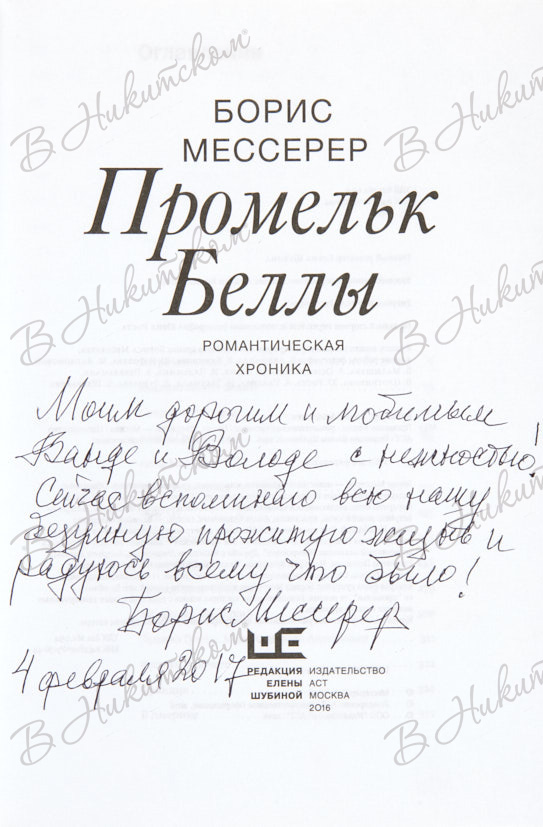 БОРИС
МЕССЕРЕР
Промельк
Беллы
РОМАНТИЧЕСКАЯ
ХРОНИКА
Моим дорогим и любимым
Ванде и Володе с нежностью!
Сейчас вспоминаю всю нашу
безумную прожитую жизнь и
радуюсь всему что было!
Борис Мессерер
4 февраля 2017
РЕДАКЦИЯ
ЕЛЕНЫ
ШУБИНОЙ
ИЗДАТЕЛЬСТВО
АСТ
МОСКВА
2016
В Никитском
В Никитском
В Никитском
В Никитском
В Никитском
В Никитском
В Никитском
В Никитском